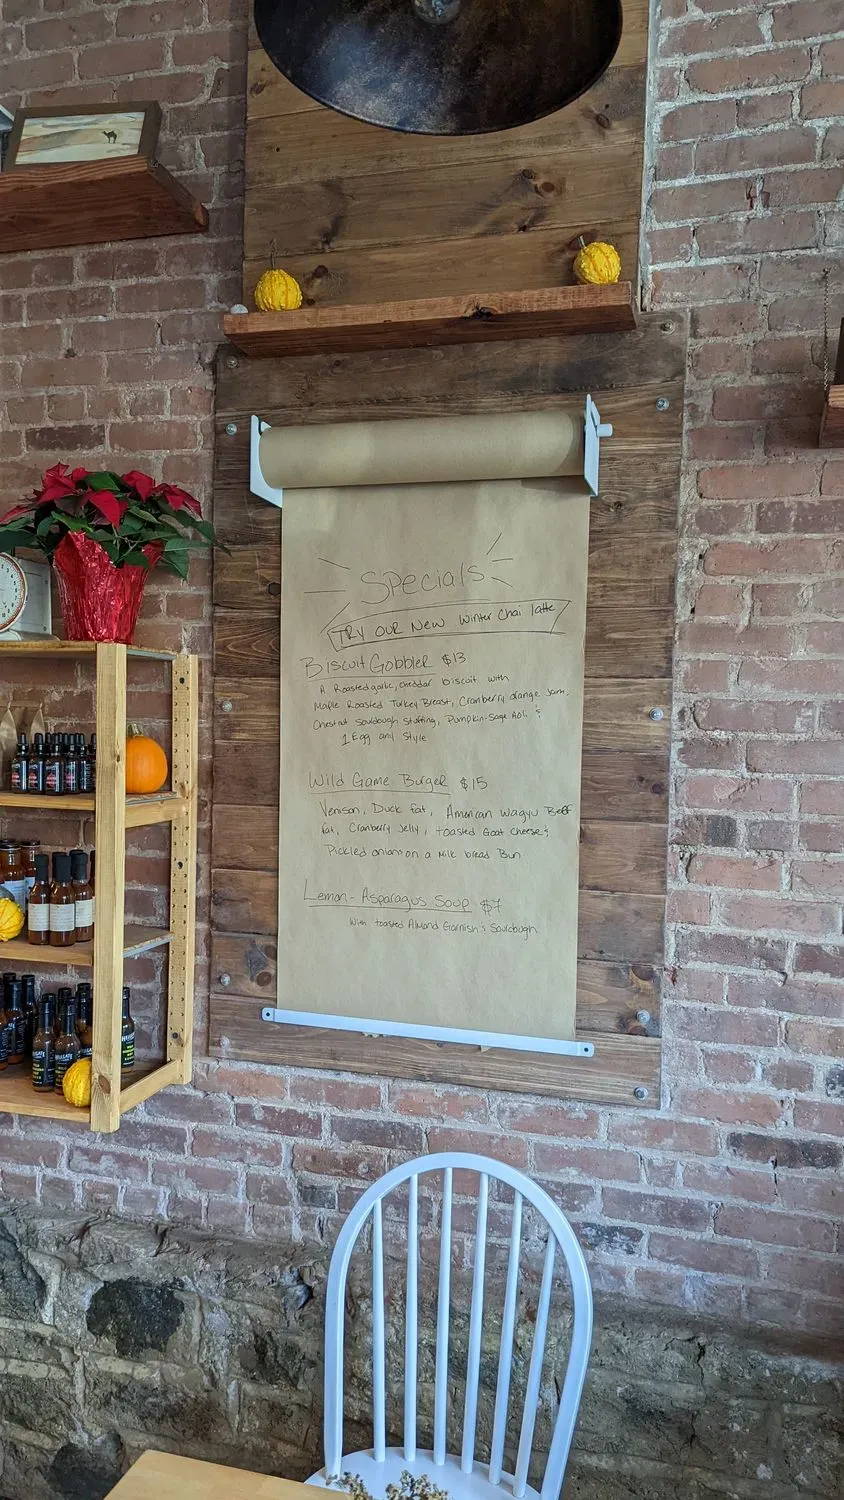 Specials
TRY OUR New Winter Chai latte
Biscuit Gobbler $13
A Roasted garlic, cheddar biscuit with
Maple Roasted Turkey Breast, Cranberry orange Jam,
Chestnut Sourdough Stuffing, Pumpkin-Sage Aoli &
1 Egg any style
Wild Game Burger $15
Venison, Duck fat, American Wagyu Beef
fat, Cranberry Jelly, toasted Goat Cheese &
Pickled onion on a Milk bread Bun
Lemon-Asparagus Soup $7
With toasted Almond Garnish & Sourdough